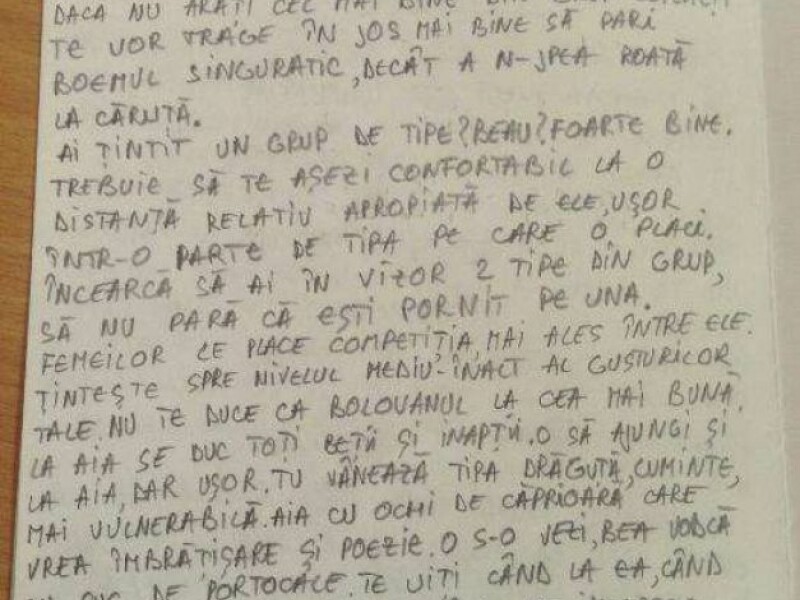 DACĂ NU ARĂȚI CEL MAI BINE DIN
TE VOR TRAGE ÎN JOS MAI BINE SĂ PARI
BOEMUL SINGURATIC, DECÂT A N-JPEA ROATĂ
LA CĂRUȚĂ.
AI ȚINTIT UN GRUP DE TIPE? BEAU? FOARTE BINE.
TREBUIE SĂ TE AȘEZI CONFORTABIL LA O
DISTANȚĂ RELATIV APROPIATĂ DE ELE, UȘOR
ÎNTR-O PARTE DE TIPA PE CARE O PLACI.
ÎNCEARCĂ SĂ AI ÎN VIZOR 2 TIPE DIN GRUP,
SĂ NU PARĂ CĂ EȘTI PORNIT PE UNA.
FEMEILOR LE PLACE COMPETIȚIA, MAI ALES ÎNTRE ELE.
ȚINTEȘTE SPRE NIVELUL MEDIU-ÎNALT AL GUSTURILOR
TALE. NU TE DUCE CA BOLOVANUL LA CEA MAI BUNĂ.
LA AIA SE DUC TOȚI BEȚII ȘI INAPȚII. O SĂ AJUNGI ȘI
LA AIA, DAR UȘOR. TU VÂNEAZĂ TIPA DRĂGUȚĂ, CUMINTE,
MAI VULNERABILĂ. AIA CU OCHI DE CĂPRIOARĂ CARE
VREA ÎMBRĂȚIȘARE ȘI POEZIE. O S-O VEZI, BEA VODCĂ
DE PORTOCALE. TE UIȚI CÂND LA EA, CÂND